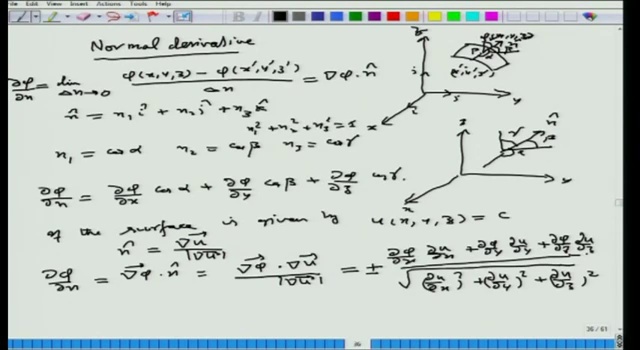 Edit View Insert Actions Tools Help
Normal derivative
∂φ/∂n = lim Δn→0 (φ(x,y,z) - φ(x',y',z'))/Δn = ∇φ·n̂
n̂ = n₁ î + n₂ ĵ + n₃ k̂
n₁² + n₂² + n₃² = 1
n₁ = cosα n₂ = cosβ n₃ = cosγ
∂φ/∂n = ∂φ/∂x cosα + ∂φ/∂y cosβ + ∂φ/∂z cosγ.
If the surface is given by u(x,y,z) = c
n̂ = ∇u/|∇u|
∂φ/∂n = ∇φ·n̂ = ∇φ·∇u/|∇u| = ± (∂φ/∂x ∂u/∂x + ∂φ/∂y ∂u/∂y + ∂φ/∂z ∂u/∂z)/√((∂u/∂x)² + (∂u/∂y)² + (∂u/∂z)²)
z
y
x
(x',y',z')
z
n̂
γ
β
α
y
x
36 / 61
36